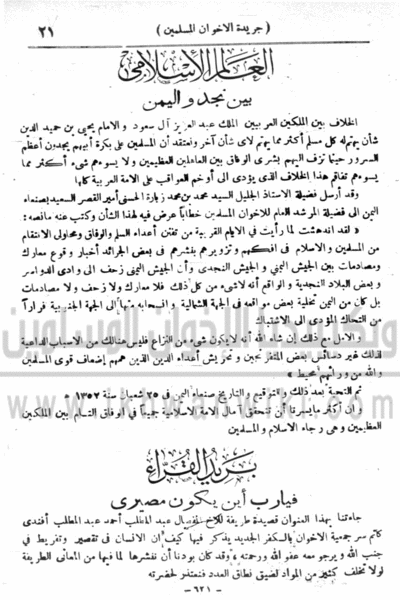 ( جريدة الاخوان المسلمين )
٢١
العالم الإسلامى
بين نجد و اليمن
الخلاف بين الملكين العربيين الملك عبد العزيز آل سعود و الامام يحيى بن حميد الدين
شأن يهتم له كل مسلم أكثر مما يهتم لاى شأن آخر ونعتقد أن المسلمين على بكرة أبيهم يجدون أعظم
السرور حينما نزف اليهم بشرى الوفاق بين العاهلين العظيمين ولا يسوءهم شىء أكثر مما
يسوءهم تفاقم هذا الخلاف الذى يؤدى الى أوخم العواقب على الامة العربية كلها
وقد أرسل فضيلة الاستاذ الجليل السيد محمد بن محمد زبارة الحسنى أمير القصر السعيد بصنعاء
اليمن الى فضيلة المرشد العام للاخوان المسلمين خطاباً عرض فيه لهذا الشأن وكتب عنه مانصه :
« لقد اندهشت لما رأيت في الايام القريبة من تفنن أعداء السلم والوفاق ومحاولى الانتقام
من المسلمين و الاسلام فى افكهم وتزويرهم بنشرهم فى بعض الجرائد أخبار وقوع معارك
ومصادمات بين الجيش اليمنى و الجيش النجدى وأن الجيش اليمنى زحف الى وادى الدواسر
و بعض البلاد النجدية و الواقع أنه لاشىء من كل ذلك فلا معارك ولا زحف ولا مصادمات
بل كان من اليمن تخلية بعض مواقعه فى الجهة الشمالية و انسحابه منها الى الجهة الجنوبية فراراً
من التحاك المؤدى الى الاشتباك
و الامل مع ذلك إن شاء الله أنه لا يكون شىء من النزاع فليس هنالك من الاسباب الداعية
لذلك غير دسائس بعض المتفرنجين و تحريش أعداء الدين الذين همهم إضعاف قوى المسلمين
و الله من ورائهم محيط »
ثم التحية بعد ذلك و التوقيع و التاريخ صنعاء اليمن فى ٢٥ شعبان سنة ١٣٥٢ »
و ان أكثر مايسرنا أن تتحقق آمال الامة الاسلامية جميعاً فى الوفاق التام بين الملكين
العظيمين وهى رجاء الاسلام و المسلمين
بريد القراء
فيارب أين يكون مصيرى
جاءتنا بهذا العنوان قصيدة طريفة للاخ عبد المطلب أحمد عبد المطلب أفندى
كاتم سر جمعية الاخوان الجديد يذكر فيها كيف أن الانسان فى تقصير وتفريط فى
جنب الله و يرجو معه عفو الله ورحمته ، وقد كان بودنا أن ننشرها لما فيها من المعانى الطريفة
لولا تخلف كثير من المواد لضيق نطاق العدد فنعتذر لحضرته
- ٦٢١ -
www.ikhwanwiki.com